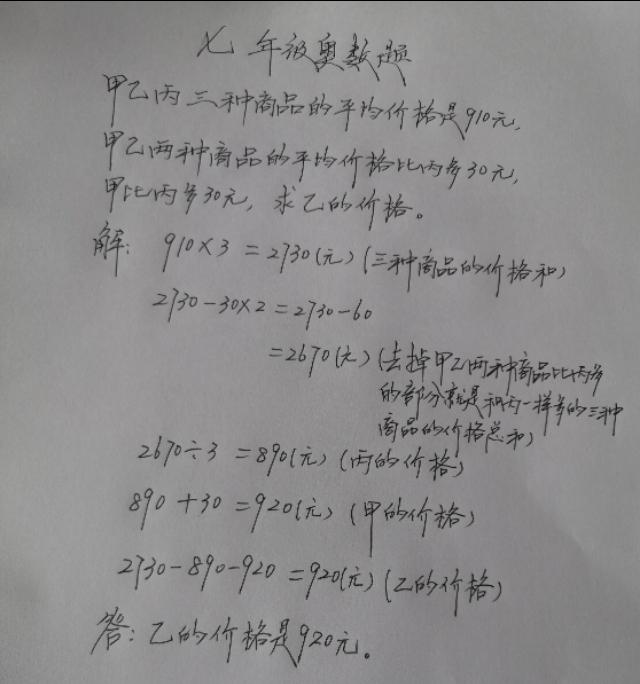 七年级奥数题
甲乙丙三种商品的平均价格是910元,
甲乙两种商品的平均价格比丙多30元,
甲比丙多30元, 求乙的价格。
解: 910×3=2730(元)(三种商品的价格和)
2730-30×2=2730-60
=2670(元)(去掉甲乙两种商品比丙多
的部分就是和丙一样多的三种
商品的价格总和)
2670÷3=890(元)(丙的价格)
890+30=920(元)(甲的价格)
2730-890-920=920(元)(乙的价格)
答: 乙的价格是920元。